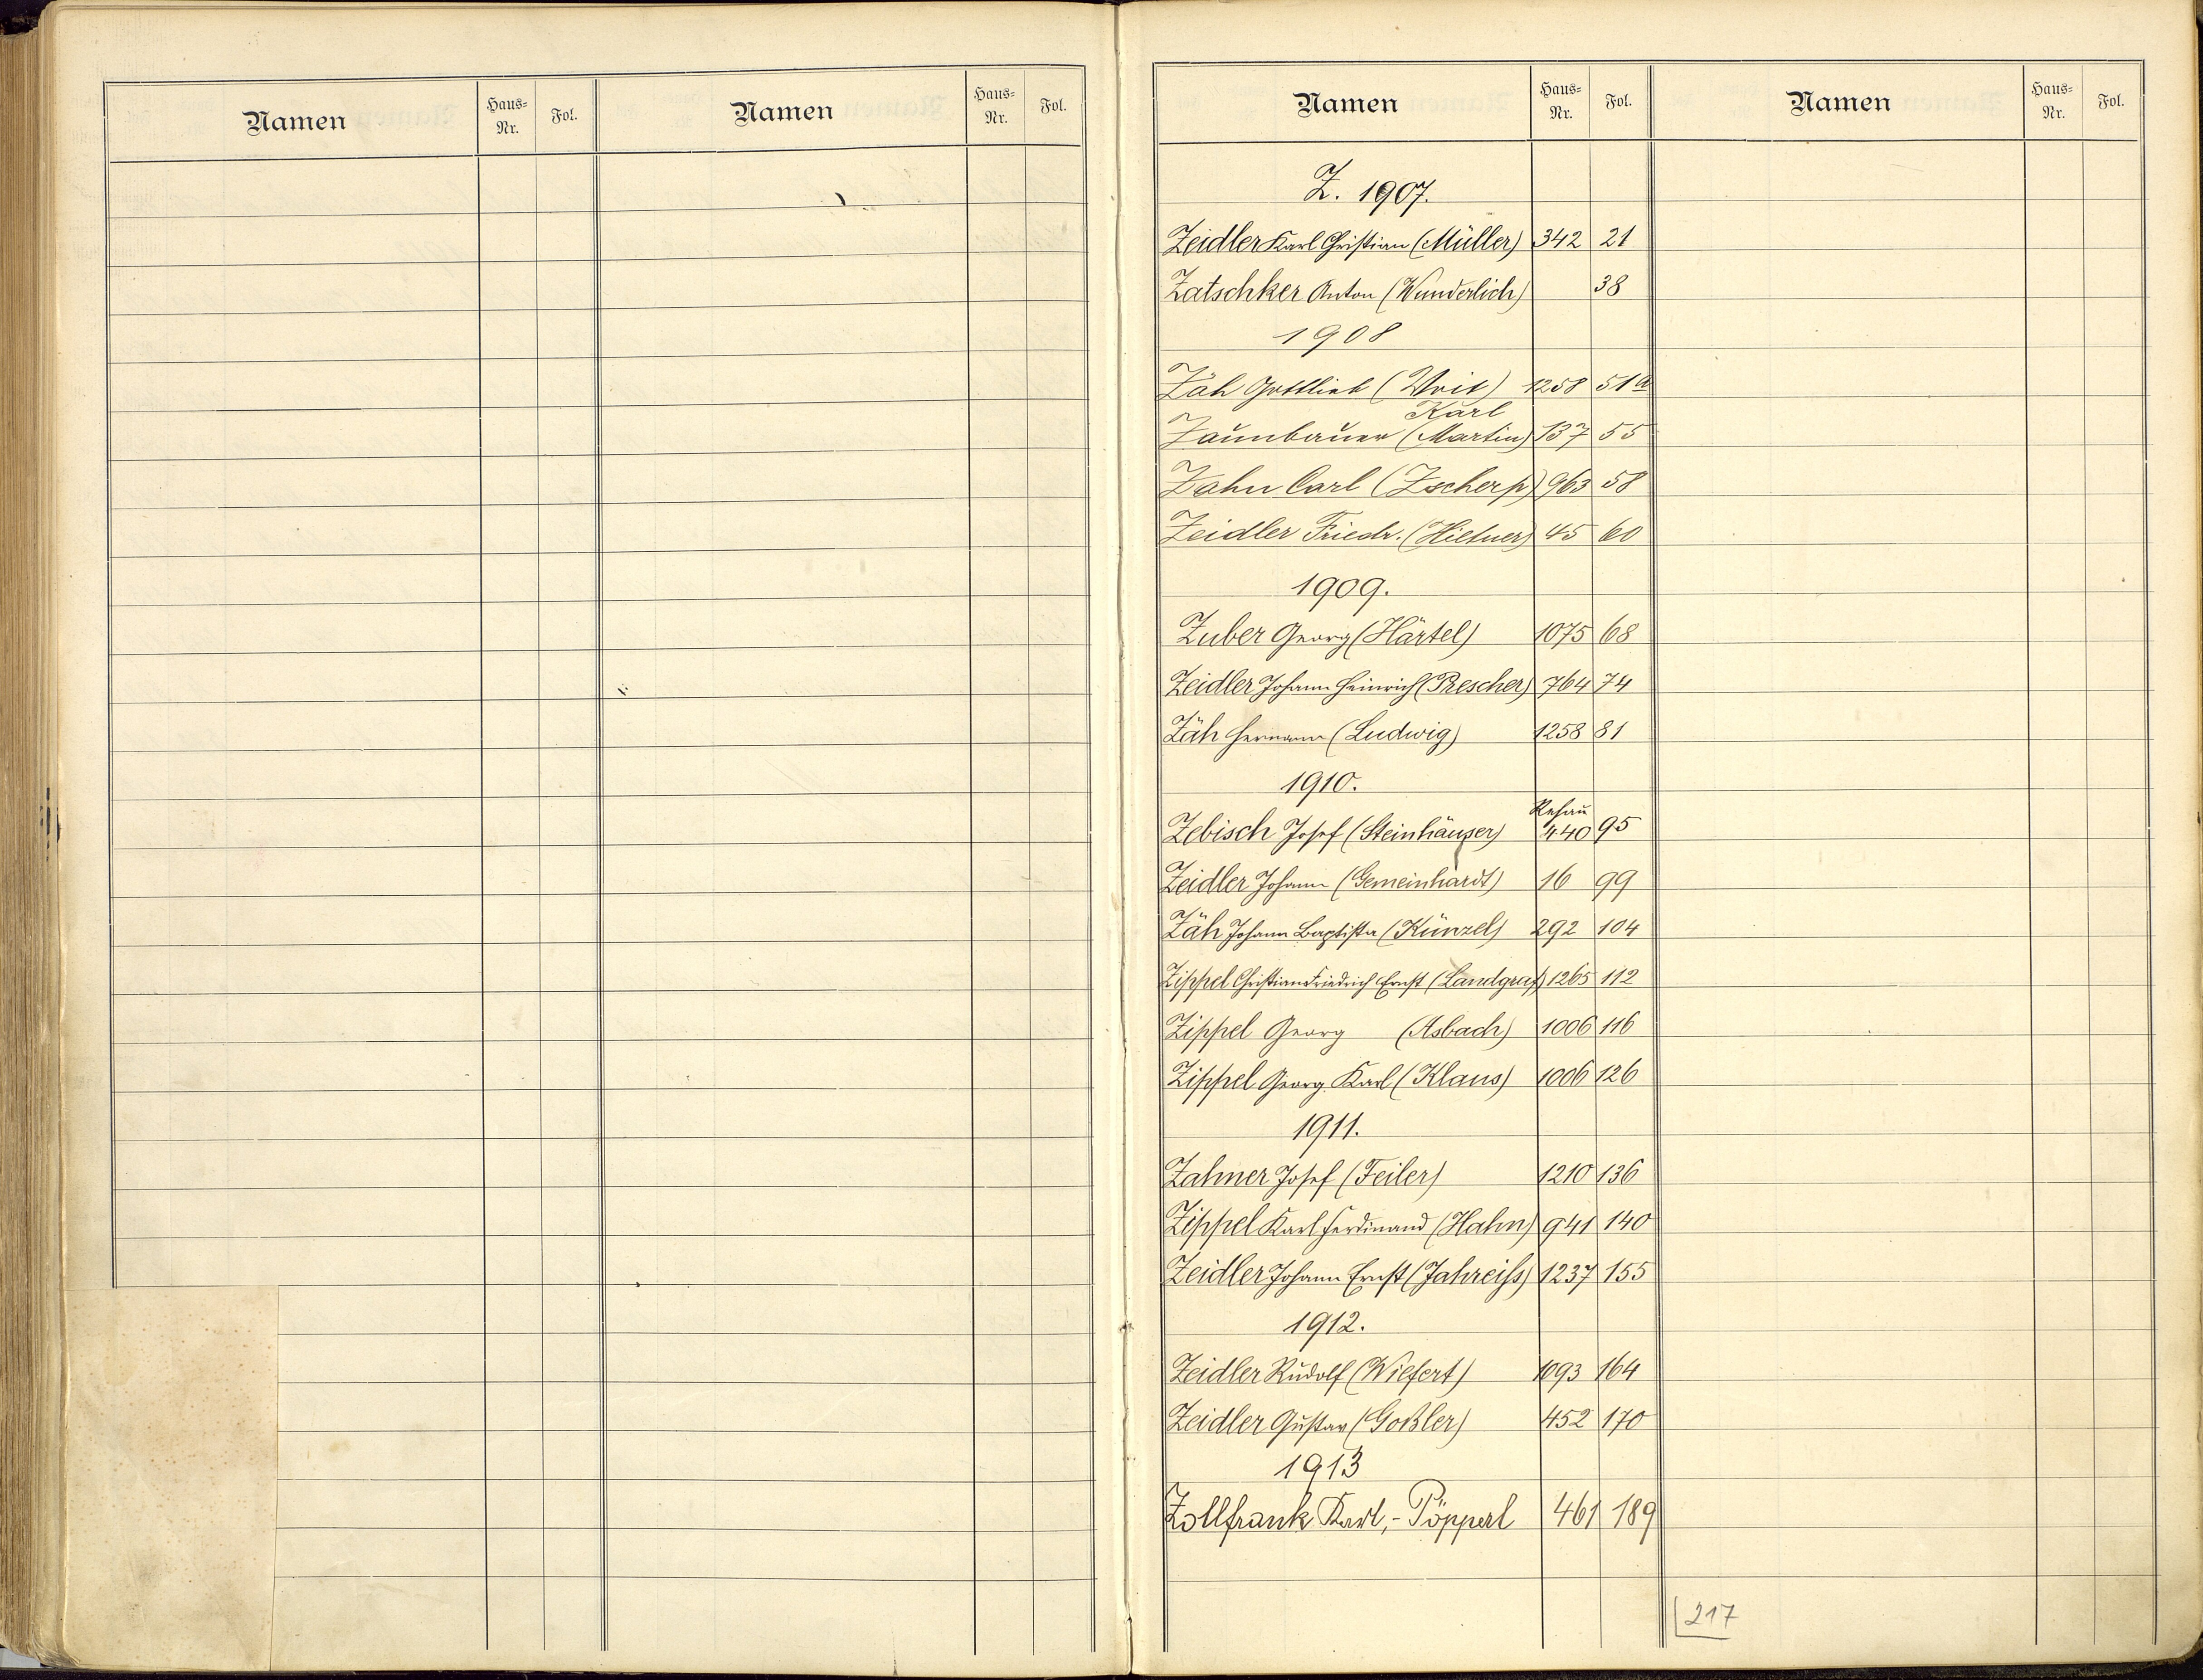 Namen Haus-Nr. Fol. Namen Haus-Nr. Fol.
Namen Haus-Nr. Fol. Namen Haus-Nr. Fol.
Z. 1907.
Zeidler Karl Christian (Müller) 342 21
Zatschker Anton (Wunderlich) 38
1908
Zäh Gottlieb (Voit) 1258 51a
Karl
Zaunbauer (Martin) 137 55
Zahn Carl (Zscherp) 963 58
Zeidler Friedr. (Hiltner) 45 60
1909.
Zuber Georg (Härtel) 1075 68
Zeidler Johann Heinrich (Prescher) 764 74
Zäh Hermann (Ludwig) 1258 81
1910.
Rehau
Zebisch Josef (Steinhäuser) 440 95
Zeidler Johann (Gemeinhardt) 16 99
Zäh Johann Baptista (Künzel) 292 104
Zippel Christian Friedrich Ernst (Landgraf) 1265 112
Zippel Georg (Asbach) 1006 116
Zippel Georg Karl (Klaus) 1006 126
1911.
Zahner Josef (Feiler) 1210 136
Zippel Karl Ferdinand (Hahn) 941 140
Zeidler Johann Ernst (Jahreiss) 1237 155
1912.
Zeidler Rudolf (Wilfert) 1093 164
Zeidler Gustav (Goßler) 452 170
1913
Zollfrank Karl,- Pöpperl 461 189
217